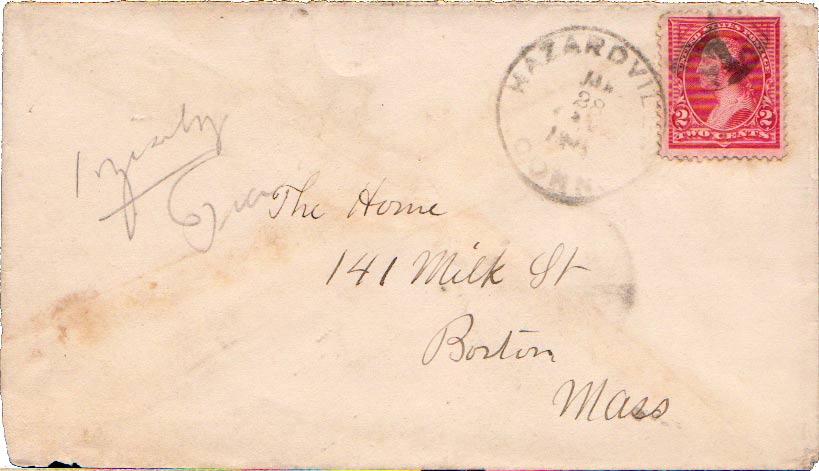 HAZARDVIL
JAN
28
CONN.
UNITED STATES POSTAGE
2 2
TWO CENTS
The Home
141 Milk St
Boston
Mass